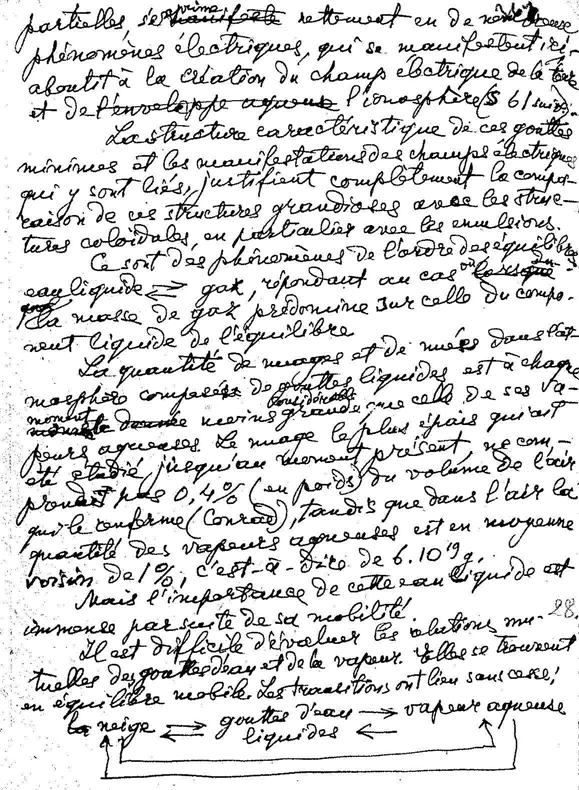 partielles s'exprime nettement en de nombreux
phénomènes électriques, qui se manifestent ici
aboutit à la création du champ électrique de la terre
et de l'enveloppe aqueuse l'ionosphère (§ 61 suiv).
La structure caractéristique de ces gouttes
minimes et les manifestations des champs électriques
qui y sont liés, justifient complètement la compa-
raison de ces structures grandioses avec les struc-
tures coloïdales, en particulier avec les emulsions.
Ce sont des phénomènes de l'ordre des équilibres
eau liquide ⇄ gaz, répondant au cas où lorsque
la masse de gaz prédomine sur celle du compo-
nent liquide de l'équilibre
La quantité de nuages et de nuées dans l'at-
mosphère composées de gouttes liquides est à chaque
moment considérable moins grande que celle de ses va-
peurs aqueuses. Le nuage le plus épais qu'ait
été étudié, jusqu'au moment présent, ne com-
prend pas 0,4% (en poids) du volume de l'air
qui le renferme (Conrad), tandis que dans l'air la
quantité des vapeurs aqueuses est en moyenne
voisin de 1%, c'est-à-dire de 6.10¹⁹g.
Mais l'importance de cette eau liquide est
immense par suite de sa mobilité.
28.
Il est difficile d'évaluer les relations mu-
tuelles des gouttes d'eau et de la vapeur. Elles se trouvent
en équilibre mobile. Les transitions ont lieu sans cesse:
la neige ⇄ gouttes d'eau → vapeur aqueuse
liquides ←